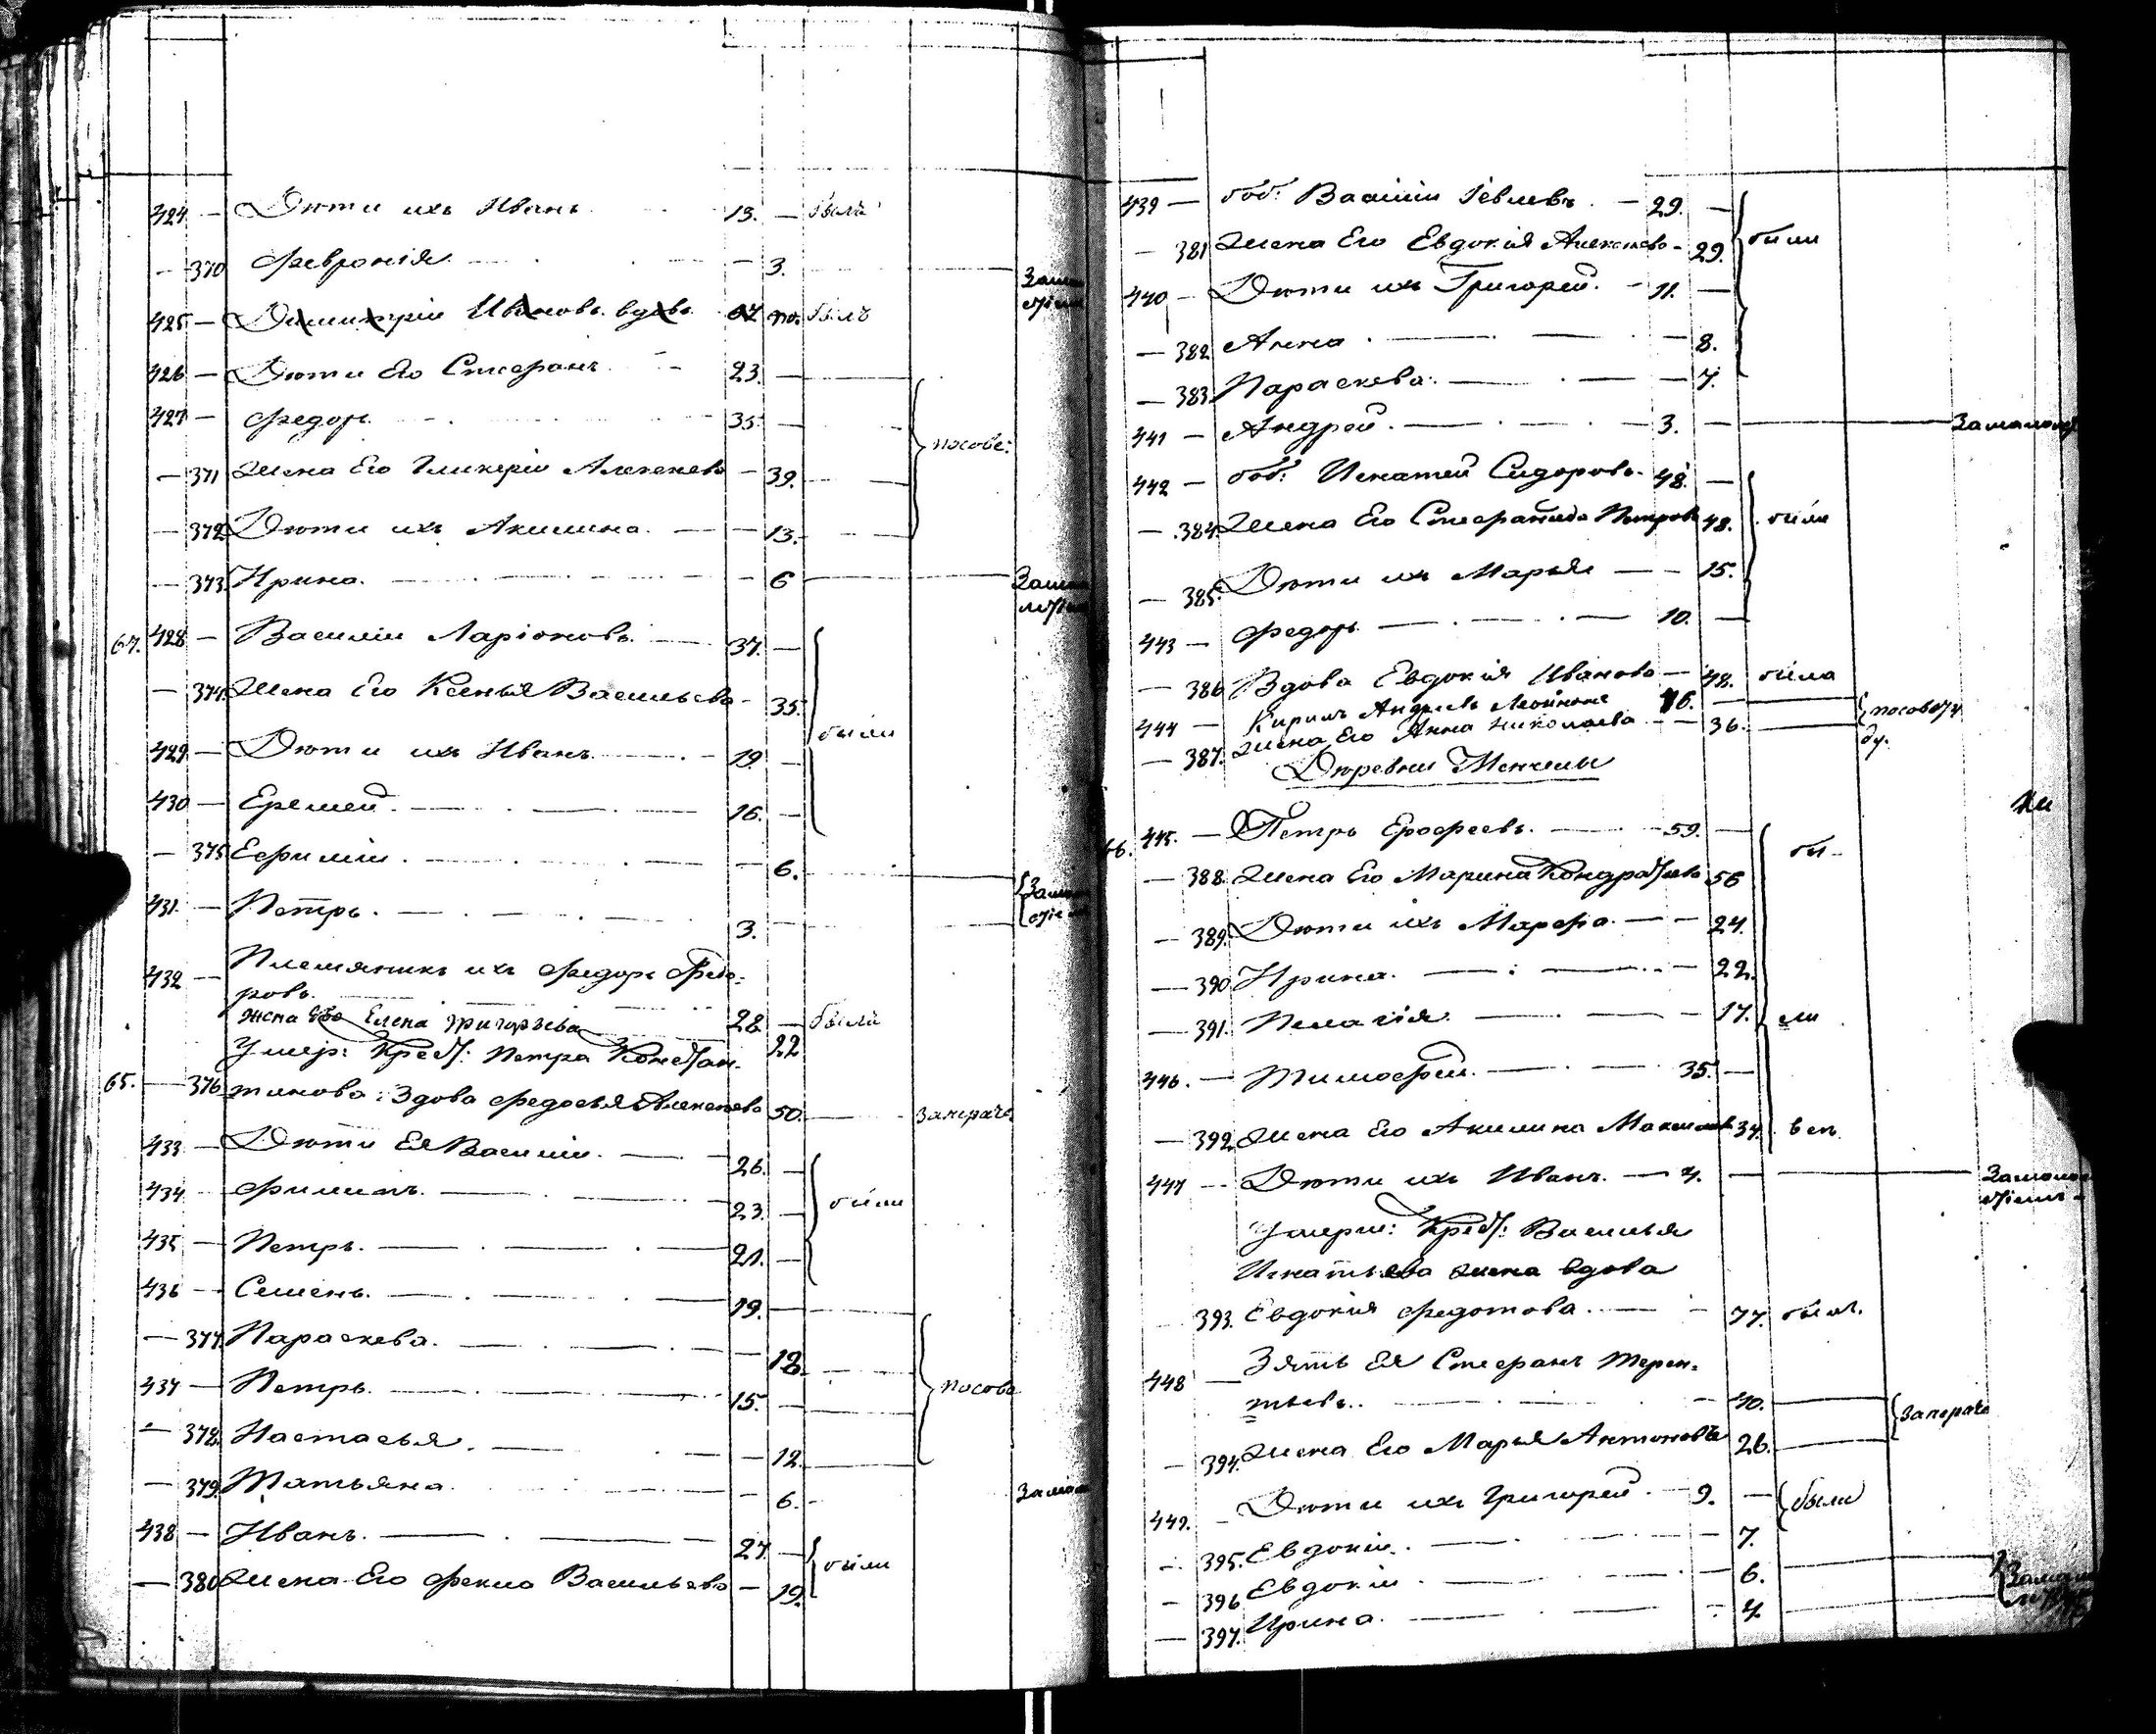 424. — Дѣти ихъ Иванъ 13. — былъ
— 370 Февронія — 3. — Замало
лѣт
425 — Димитрій Ивановъ вдовъ по. былъ
426 — Дѣти Его Стефанъ 23. —
427 — Федоръ 35. — посове:
— 371 Жена Его Гликерія Алексѣева — 39.
— 372 Дѣти ихъ Акилина — 13.
— 373 Ирина — 6 — Замал
лѣт
67. 428 — Василій Ларіоновъ 37. —
— 374. Жена Его Ксенья Васильева — 35. были
429 — Дѣти ихъ Иванъ — 19. —
430 — Еремей — 16. —
— 375 Ефимія — 6. — Замал
431. — Петръ — 3. — лѣт
432 — Племянникъ ихъ Федоръ Федо-
ровъ 28 — были
жена Его Елена Григорьева 22
Умер: Крест: Петра Констан-
65. — 376 тинова: Вдова Федосья Алексѣева 50. — Запрач.
433 — Дѣти Ея Василій — 26. —
434 — Филипъ — 23. — были
435 — Петръ — 21. —
436 — Семенъ — 19. —
— 377. Параскева — 18.
437 — Петръ — 15. — посове
— 378. Настасья — 12.
— 379. Татьяна — 6. Замал
438 — Иванъ — 27. —
— 380 Жена Его Фекла Васильева — 19. были
439 — боб: Василій Іевлевъ — 29. —
— 381 Жена Его Евдокія Алексѣева — 29. были
440 — Дѣти ихъ Григорей — 11. —
— 382 Анна — 8.
— 383. Параскева — 7.
441 — Андрей — 3. — Замалол
442 — боб: Игнатей Сидоровъ 48. —
— 384. Жена Его Стефанида Петрова 48. были
— 385. Дѣти ихъ Марья — 15.
443 — Федоръ — 10. —
— 386 Вдова Евдокія Иванова — 48. была
444 — Кирилъ Андреевъ 46. —
— 387. жена Его Анна Николаева — 36. —
Деревни
66. 445. — Петръ Ерофеевъ — 59. — бы-
— 388. Жена Его Марина Кондратьева 56
— 389. Дѣти ихъ Марфа — 24.
— 390 Ирина — 22.
— 391. Пелагія — 17. ли
446. — Тимофей — 35. —
— 392 Жена Его Акилина Максимова 34. всѣ
447 — Дѣти ихъ Иванъ — 4. — Замало
лѣтст-
Умерш: Крест: Василья
Игнатьева жена вдова
393. Евдокія Федотова — 77. была.
448 — Зять Ея Стефанъ Терен-
тьевъ — 40. — Запрач
— 394. Жена Его Марья Антонова 26. —
449. — Дѣти ихъ Григорей — 9. — были
— 395. Евдокія — 7.
— 396 Евдокія — 6. — Замал
— 397. Ирина — 4